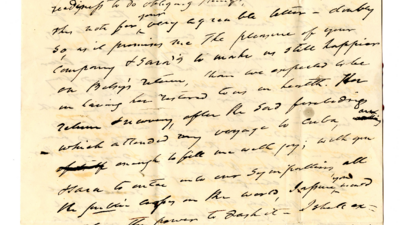 readiness to do obliging things.
this note for your very agreeable letter – doubly
so, as it promises me the pleasure of your
Company & Sara's to make us still happier
on Betsy's return, than we expected to be
in having her restored to us in health. Her
return & recovery after the sad forebodings
which attended my voyage to Cuba, are
enough to fill me with joy; with you
Sara to enter into our sympathies all
the in the world, I assure you would
the power to dash it – I shall